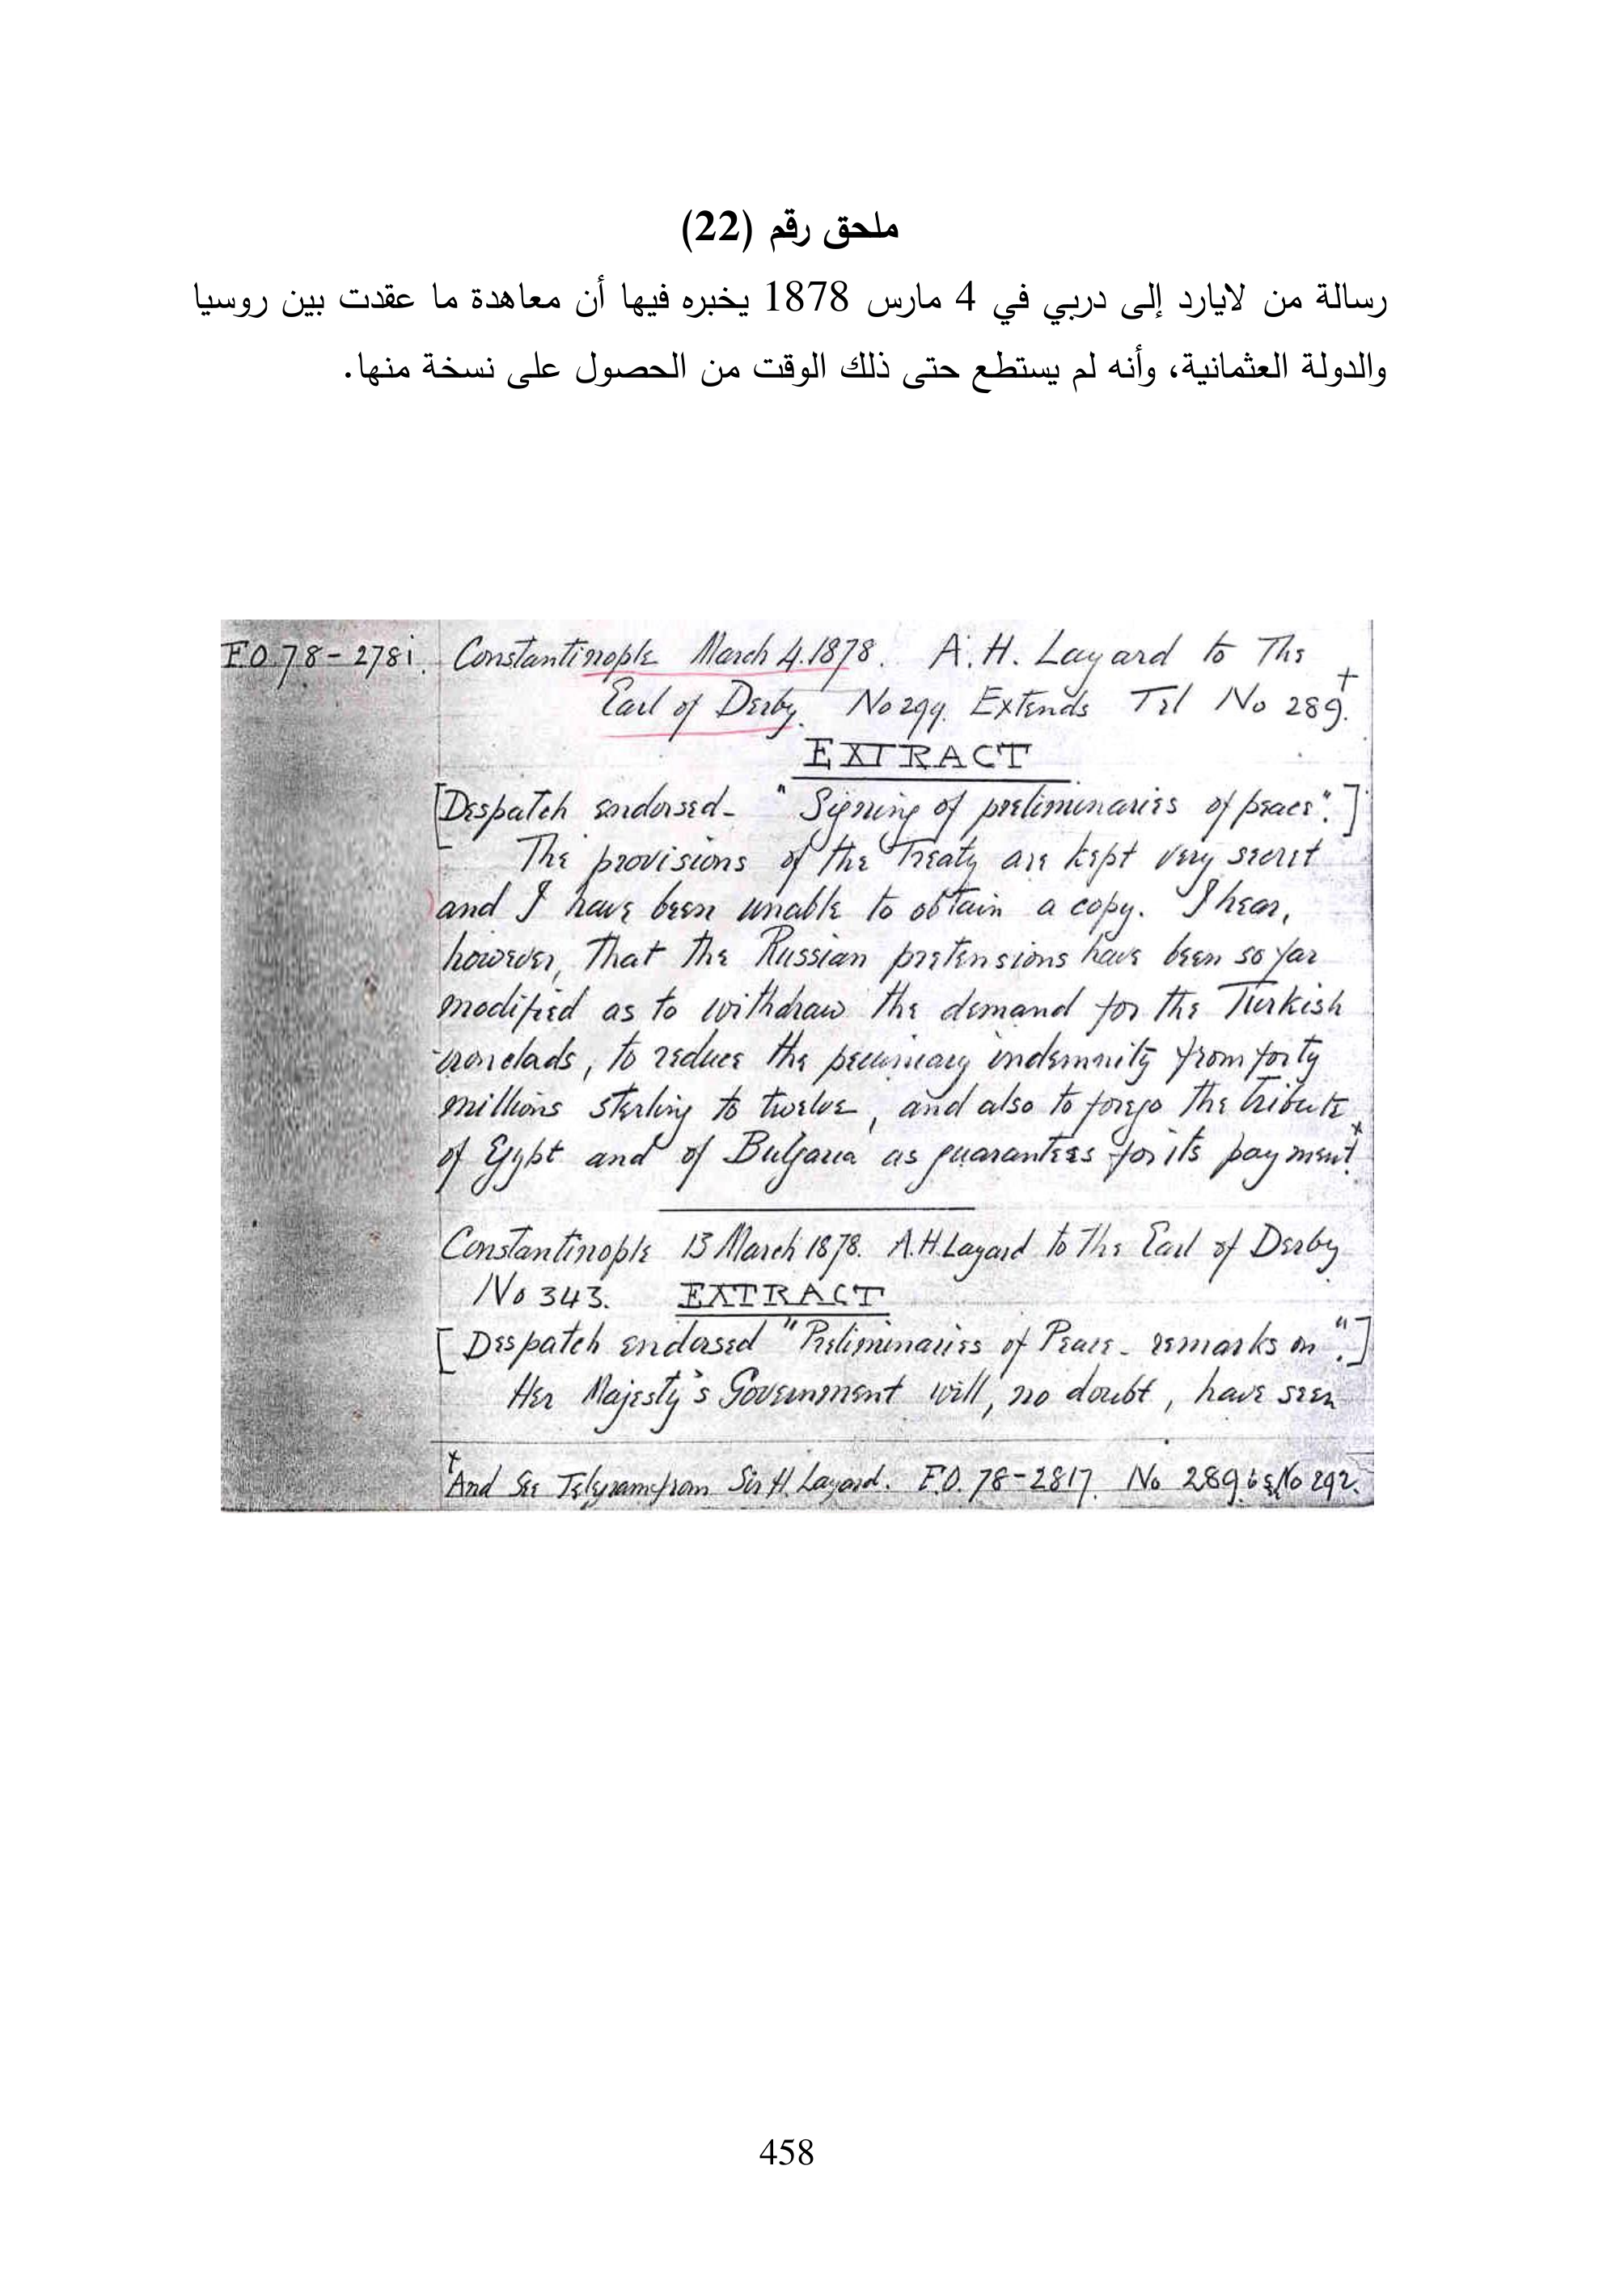 ملحق رقم (22)
رسالة من لايارد إلى دربي في 4 مارس 1878 يخبره فيها أن معاهدة ما عقدت بين روسيا
والدولة العثمانية، وأنه لم يستطع حتى ذلك الوقت من الحصول على نسخة منها.
F.O 78-2781. Constantinople March 4.1878. A.H. Layard to The
Earl of Derby. No 299. Extends Tel No 289.†
EXTRACT
[Despatch endorsed - "Signing of preliminaries of peace".]
The provisions of the Treaty are kept very secret
and I have been unable to obtain a copy. I hear,
however, that the Russian pretensions have been so far
modified as to withdraw the demand for the Turkish
ironclads, to reduce the pecuniary indemnity from forty
millions sterling to twelve, and also to forego the tribute
of Egypt and of Bulgaria as guarantees for its payment.
Constantinople 13 March 1878. A.H. Layard to The Earl of Derby
No 343. EXTRACT
[Despatch endorsed "Preliminaries of Peace - remarks on".]
Her Majesty's Government will, no doubt, have seen
† And See Telegram from Sir H. Layard. F.O. 78-2817. No 289. No 292.
458